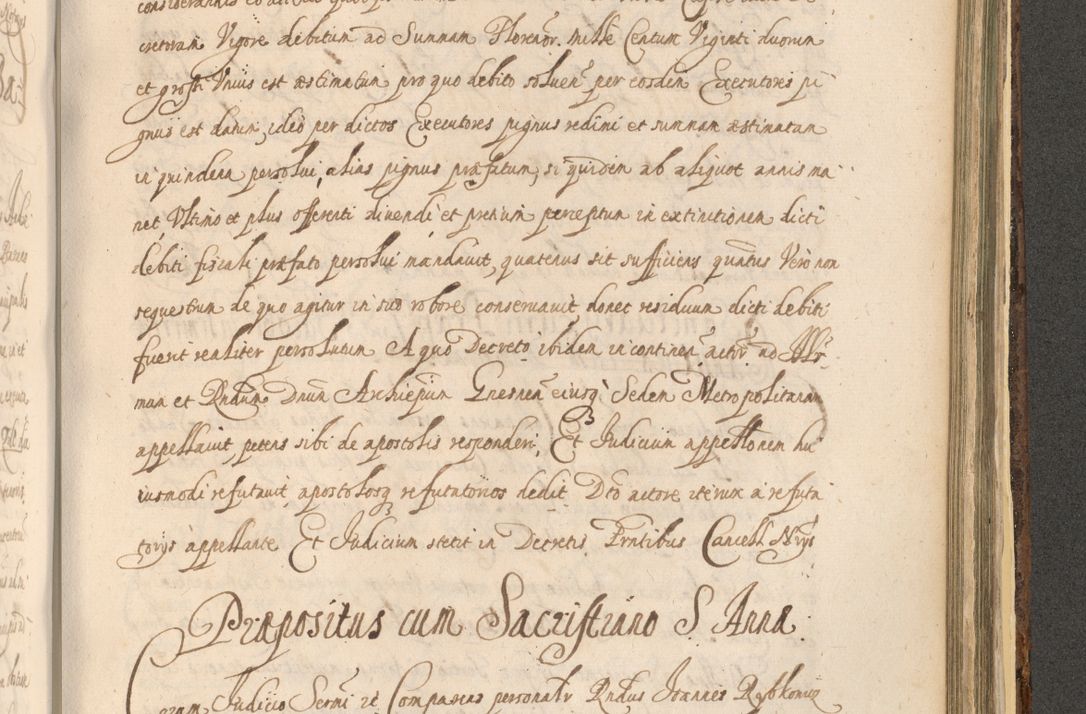 cretorum Vigore debitum ad Summam Florenor. mille Centum Viginti duorum
et grossi Unius est æstimatum pro quo debito soluen. per eosdem Executores pi
gnus est datum, ideo per dictos Executores pignus redimi et summam æstimatam
in quindena persolui, alias pignus præfatum, si quidem ab aliquot annis ma
net, Ultimo et plus offerenti diuendi et pretium perceptum in extinctionem dicti
debiti fiscali præfato persolui mandauit, quatenus sit sufficiens quantus Vero non
sequestrum de quo agitur in suo robore conseruauit donec residuum dicti debiti
fuerit realiter persolutum A quo Decreto ibidem incontinen. actor ad Illr
mum et Rndum Dnum Archiepum Gnesnen eiusq Sedem Metropolitanam
appellauit, petens sibi de apostolis responderi, Et Iudicium appellonem hu
iusmodi refutauit apostolosq refutatorios dedit Dto actore iterum a refuta
torijs appellante Et Iudicium stetit in Decretis Prntibus Cancell. Nrijs
Præpositus cum Sacristiano S Anna
Coram Iudicio Sermi et Comparens personalr Rndus Ioannes Rybkowic